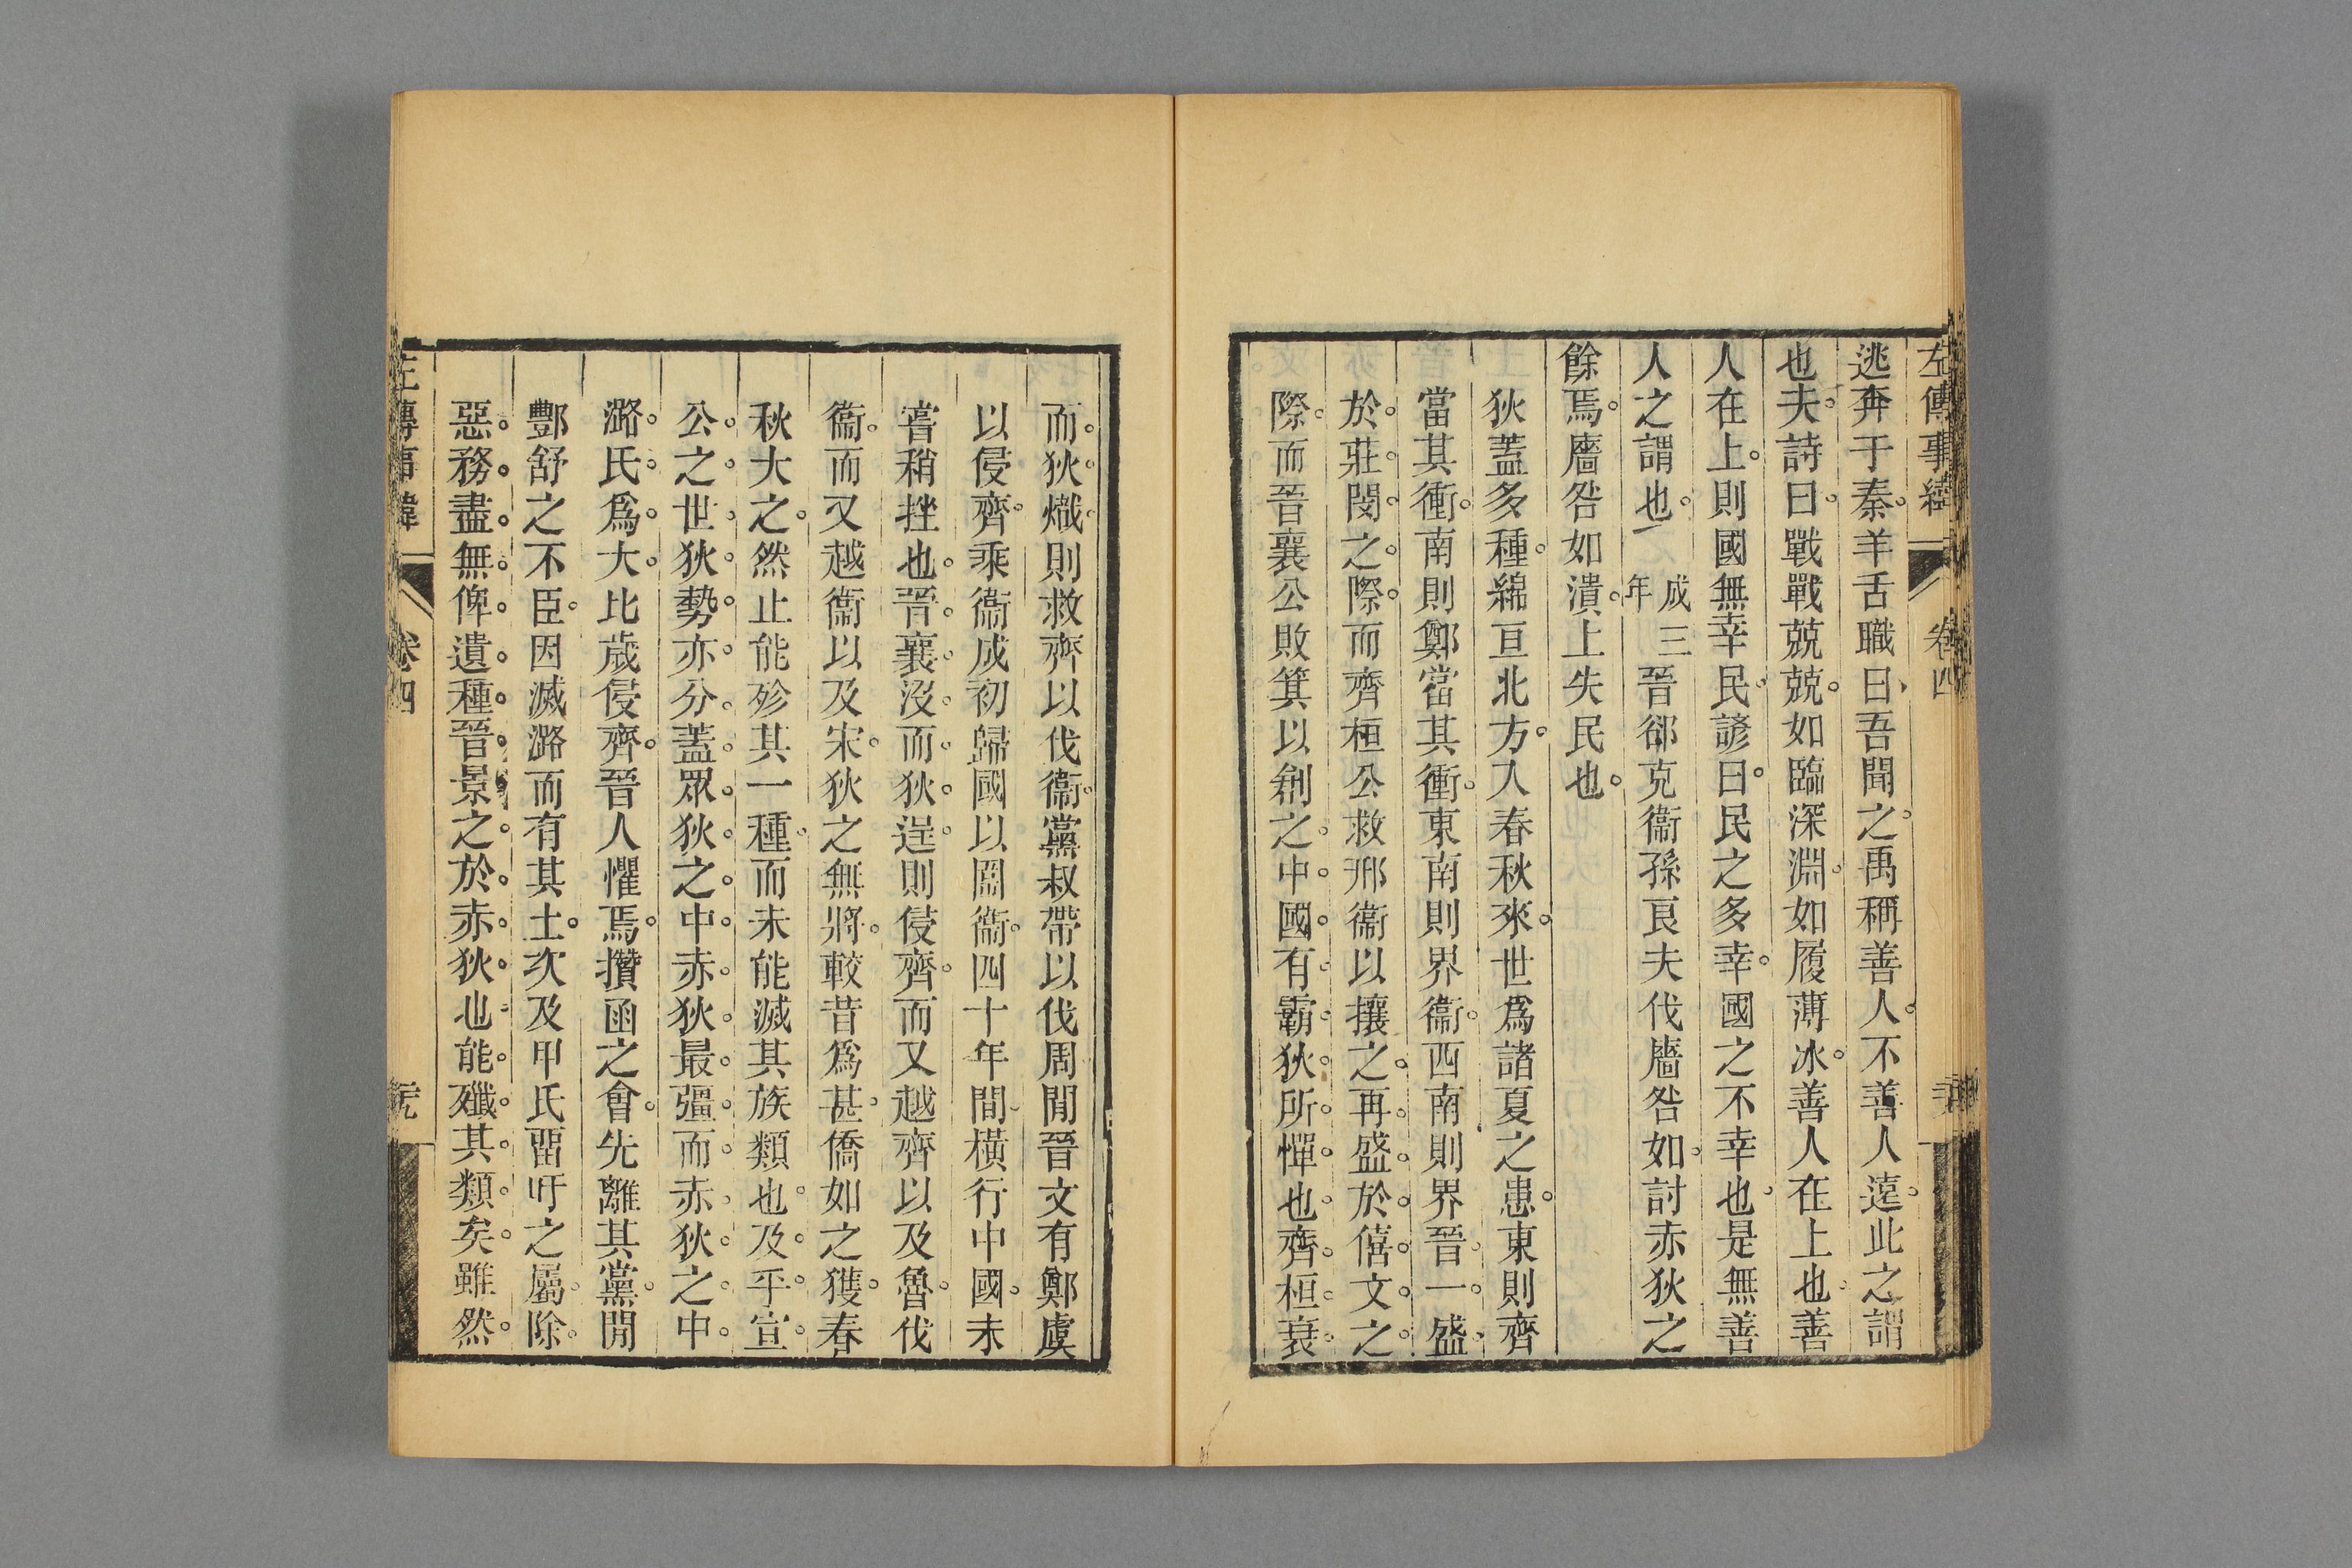 逃奔于秦羊舌職曰吾聞之禹稱善人不善人遠此之謂
也夫詩曰戰戰兢兢如臨深淵如履薄冰善人在上也善
人在上則國無幸民諺曰民之多幸國之不幸也是無善
人之謂也
成三年
晉郤克衞孫良夫伐廧咎如討赤狄之
餘焉廧咎如潰上失民也
狄蓋多種綿亘北方入春秋來世爲諸夏之患東則齊
當其衝南則鄭當其衝東南則界衞西南則界晉一盛
於莊閔之際而齊桓公救邢衞以攘之再盛於僖文之
際而晉襄公敗箕以創之中國有霸狄所憚也齊桓衰
而狄熾則救齊以伐衞黨叔帶以伐周閒晉文有鄭虞
以侵齊乘衞成初歸國以圍衞四十年間橫行中國未
嘗稍挫也晉襄沒而狄逞則侵齊而又越齊以及魯伐
衞而又越衞以及宋狄之無將較昔爲甚僑如之獲春
秋大之然止能殄其一種而未能滅其族類也及乎宣
公之世狄勢亦分蓋眾狄之中赤狄最彊而赤狄之中
潞氏爲大比歲侵齊晉人懼焉攢函之會先離其黨閒
酆舒之不臣因滅潞而有其土次及甲氏畱吁之屬除
惡務盡無俾遺種晉景之於赤狄也能殲其類矣雖然
左傳事緯
卷四
左傳事緯
卷四